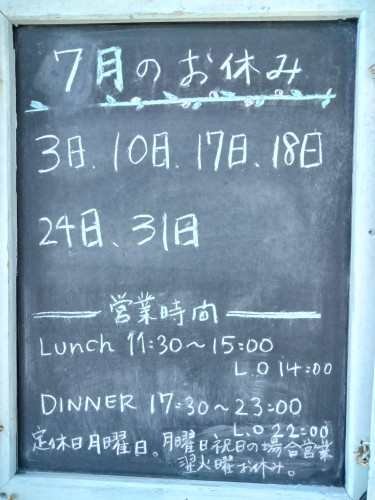 7月のお休み
3日、10日、17日、18日
24日、31日
営業時間
Lunch 11:30～15:00
L.O 14:00
DINNER 17:30～23:00
L.O 22:00
定休日月曜日。月曜日祝日の場合営業
翌火曜お休み。